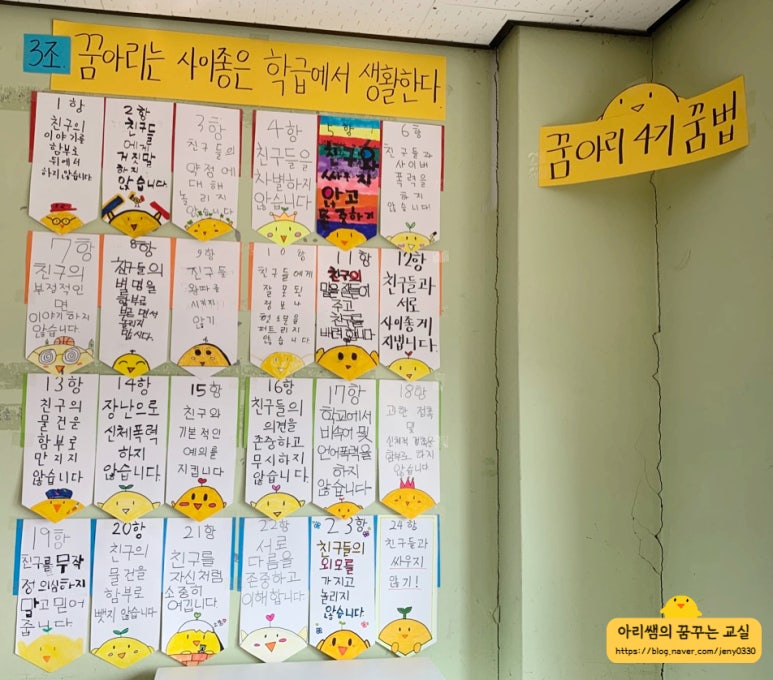 3조. 꿈아리는 사이좋은 학급에서 생활한다
꿈아리 4기 꿈법
1항
친구의
이야기를
함부로
뒤에서
하지 않습니다
2항
친구들
에게
거짓말
하지
않습니다
3항
친구들의
약점에
대해
놀리지
않습니다
4항
친구들을
차별하지
않습니다
5항
친구와
싸우지
않고
존중하기
6항
친구들과
사이버
폭력을
하지
않습니다
7항
친구의
부정적인
면
이야기하지
않습니다.
8항
친구들의
별명을
함부로
부르면서
놀리지
맙시다.
9항
친구들
왕따를
시키지
않기
10항
친구들에게
잘못된
정보나
헛소문을
퍼트리지
않습니다
11항
친구의
믿음직들이
주고
친구를
배려합니다
12항
친구들과
서로
사이좋게
지냅니다.
13항
친구의
물건을
함부로
만지지
않습니다
14항
장난으로
신체폭력
하지
않습니다.
15항
친구와
기본적인
예의를
지킵니다
16항
친구들의
의견을
존중하고
무시하지
않습니다.
17항
학교에서
비속어 및
언어폭력을
하지
않습니다
18항
과한 접촉
및
신체적 접촉을
함부로 하지
않습니다
19항
친구를 무작
정 의심하지
말고 믿어
줍니다
20항
친구의
물건을
함부로
뺏지 않습니다
21항
친구를
자신처럼
소중히
여깁니다
22항
서로
다름을
존중하고
이해합니다
23항
친구들의
외모를
가지고
놀리지
않습니다
24항
친구들과
싸우지
않기!
아리쌤의 꿈꾸는 교실
https://blog.naver.com/jeny0330